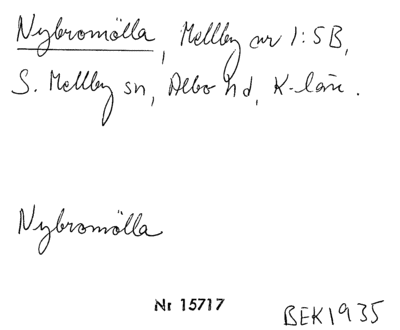 Nybromölla, Mellby nr 1:5B,
S. Mellby sn, Albo hd, K-län.
Nybromölla
Nr 15717
BEK1935